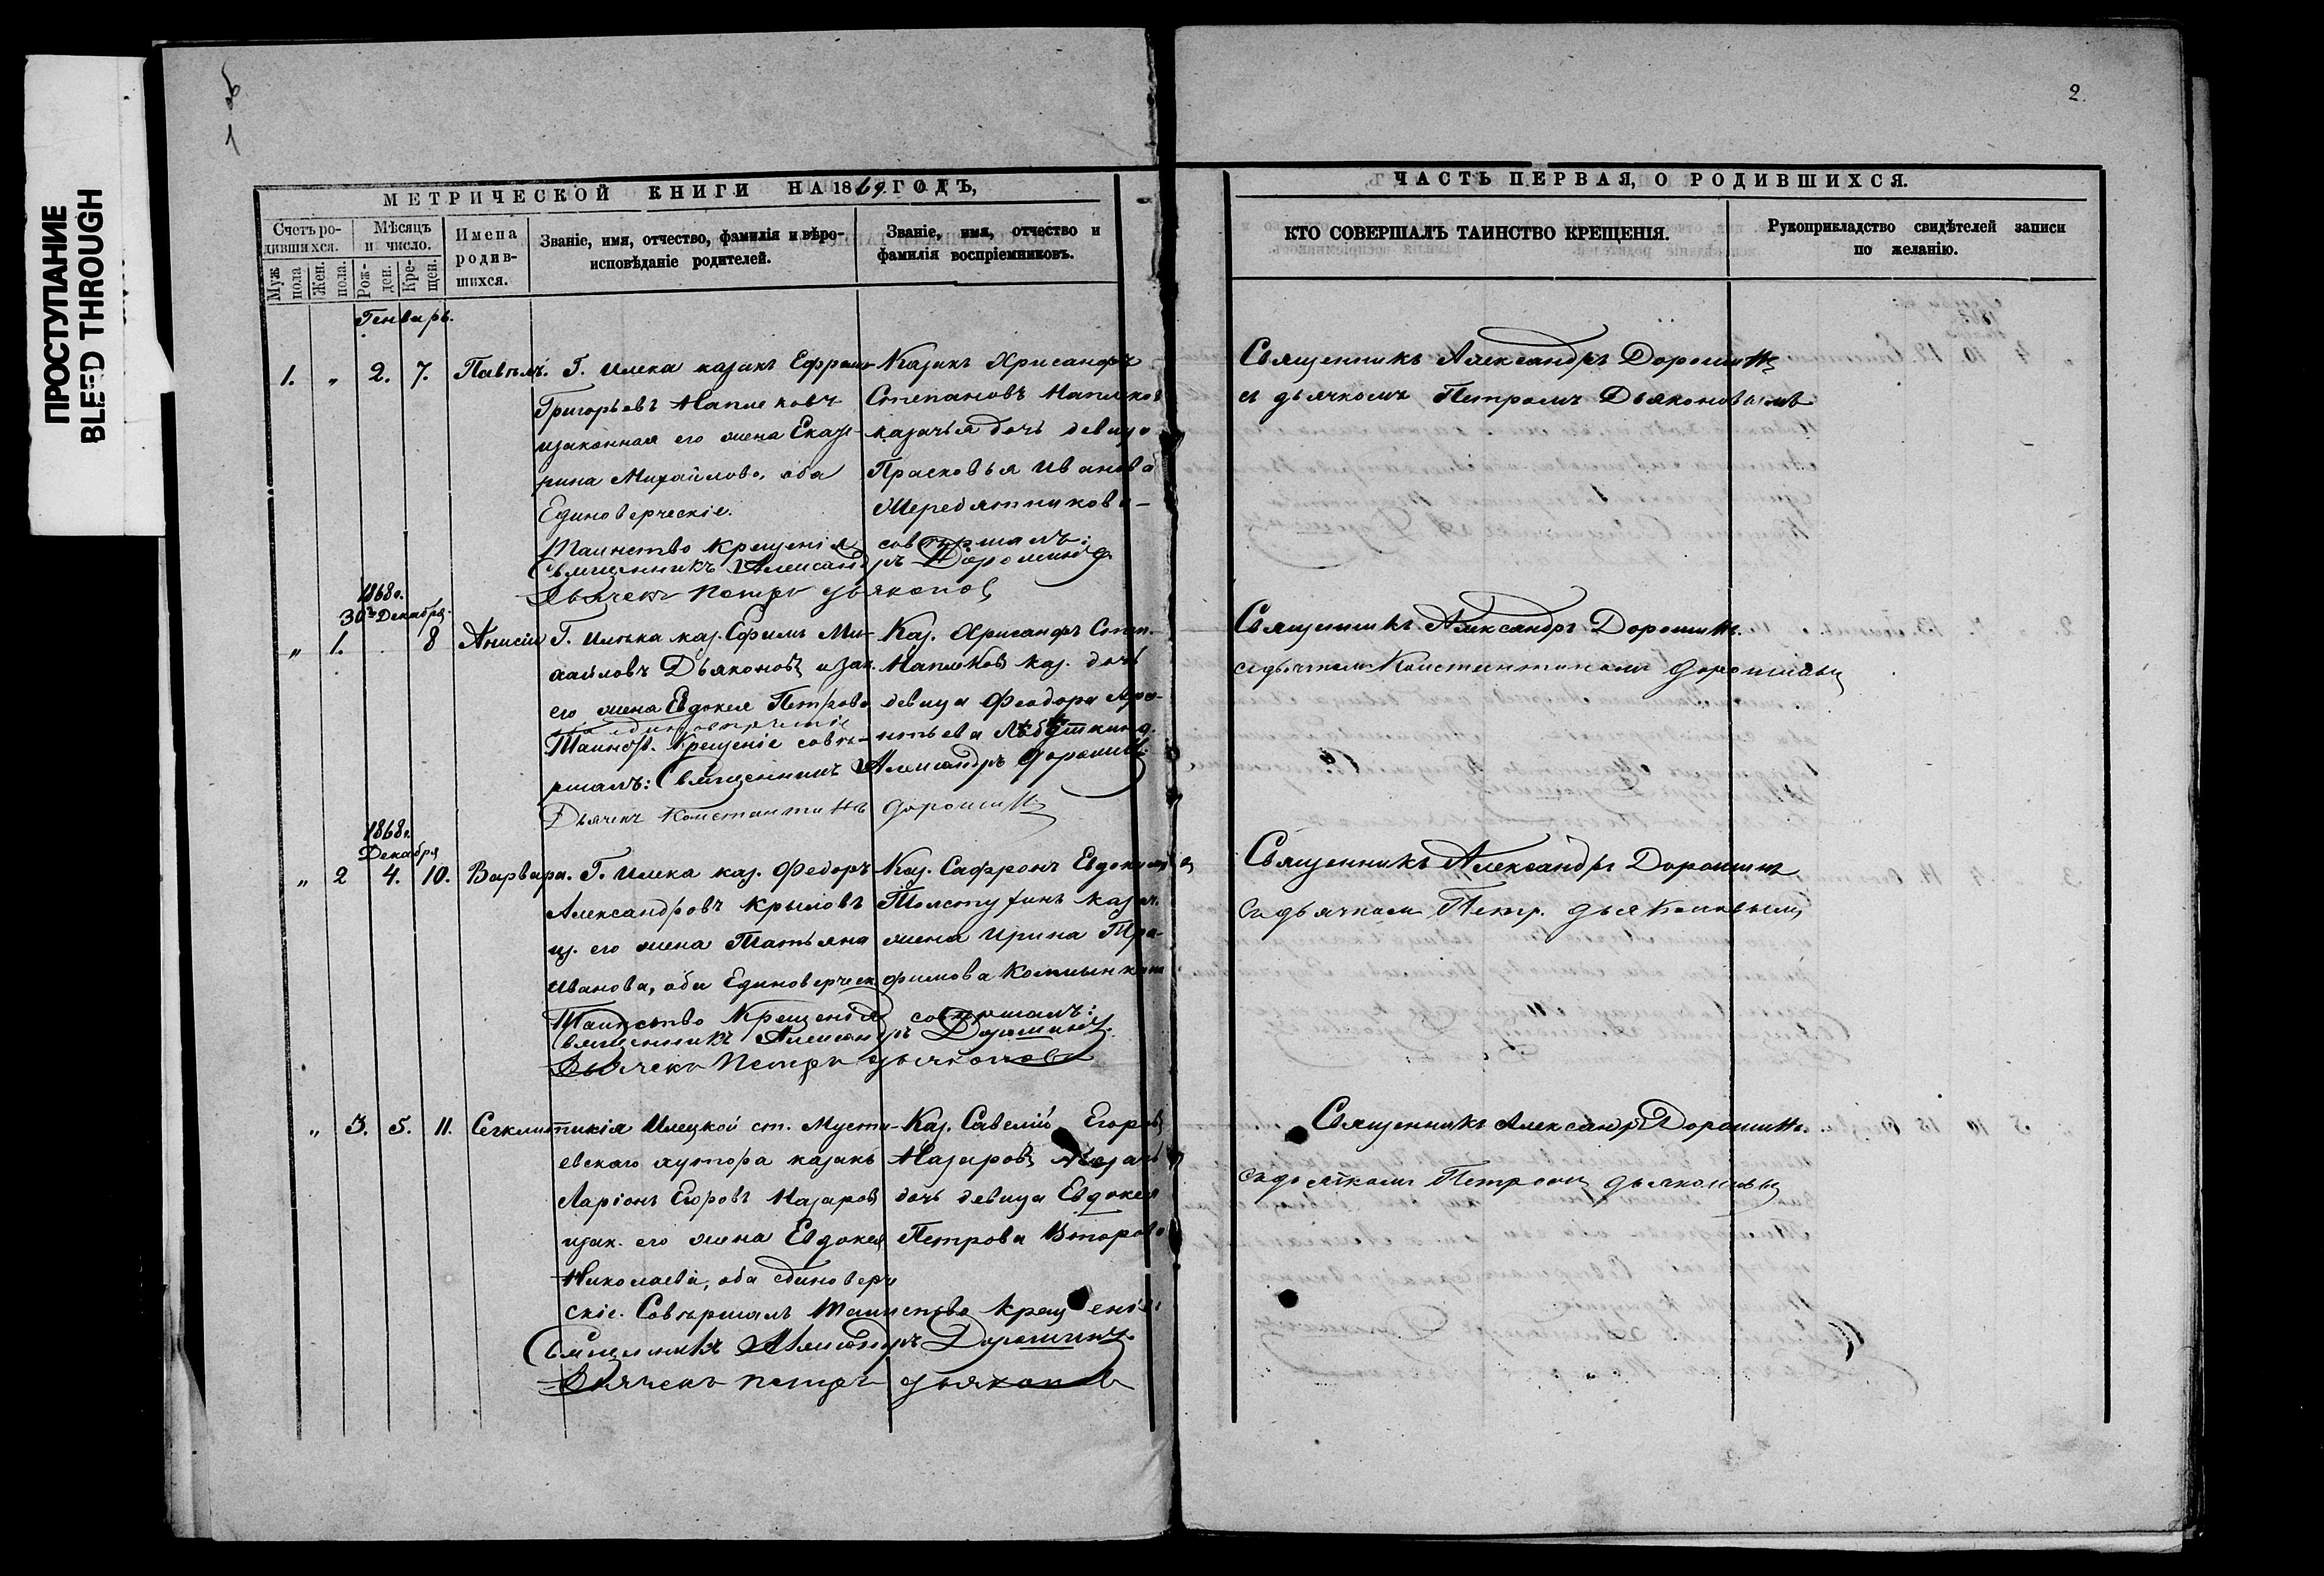 ПРОСТУПАНИЕ
BLEED THROUGH
1 об
2.
МЕТРИЧЕСКОЙ КНИГИ НА 1869 ГОДЪ,
Счетъ родившихся.
Мѣсяцъ и число.
Имена родившихся.
Званіе, имя, отчество, фамилія и вѣроисповѣданіе родителей.
Званіе, имя, отчество и фамилія воспріемниковъ.
Муж пола
Жен. пола.
Рожден.
Крещен.
Генварь.
1. " 2. 7. Павелъ.
Г. Илека казакъ Ефремъ
Григорьевъ
изаконная его жена Екате-
рина Михайлова, оба
Единоверческіе.
Казакъ Хрисанфъ
Степановъ
казачья дочь девица
Прасковья Иванова
Таинство Крещенія совершалъ:
Священникъ Александръ Дорошинъ
Дьячекъ Петръ Дьяконовъ
1868 г.
30го Декабря
" 1. 8 Анисія
Г. Илека каз. Ефимъ Ми-
хайловъ Дьяконовъ изак.
его жена Евдокея Петрова
оба единоверческіе
Каз. Хрисанфъ Степ.
каз. дочь
девица Феодора
Таинст. Крещеніе сове-
ршалъ: Священникъ Александръ Дорошинъ
Дьячекъ Константинъ Дорошинъ
1868 г.
Декабря
" 2 4. 10. Варвара.
Г. Илека каз. Федоръ
Александровъ Крыловъ
из. его жена Татьяна
Иванова, оба Единоверческ.
Каз. Сафронъ Евдокимовъ
Толстухинъ казач.
жена Ирина Тро-
фимова
Таинство Крещенія совершалъ:
Священникъ Александръ Дорошинъ
Дьячекъ Петръ Дьяконовъ
" 3. 5. 11. Сегклитикія
Илецкой ст. Мусти-
евскаго хутора казакъ
Ларіонъ Егоровъ Назаровъ
изак. его жена Евдокея
Николаева, оба единоверче
скіе. Совершалъ Таинство Крещенія:
Каз. Савелій Егоровъ
Назаровъ
дочь девица Евдокея
Петрова Второва
Священникъ Александръ Дорошинъ
Дьячекъ Петръ Дьяконовъ
ЧАСТЬ ПЕРВАЯ, О РОДИВШИХСЯ.
КТО СОВЕРШАЛЪ ТАИНСТВО КРЕЩЕНІЯ.
Рукоприкладство свидѣтелей записи по желанію.
Священникъ Александръ Дорошинъ
съ дьячкомъ Петромъ Дьяконовымъ
Священникъ Александръ Дорошинъ.
съ дьячкомъ Константиномъ Дорошинымъ
Священникъ Александръ Дорошинъ
Съ дьячкомъ Петр. Дьяконовымъ
Священникъ Александръ Дорошинъ.
Съ дьячкомъ Петромъ Дьяконовымъ